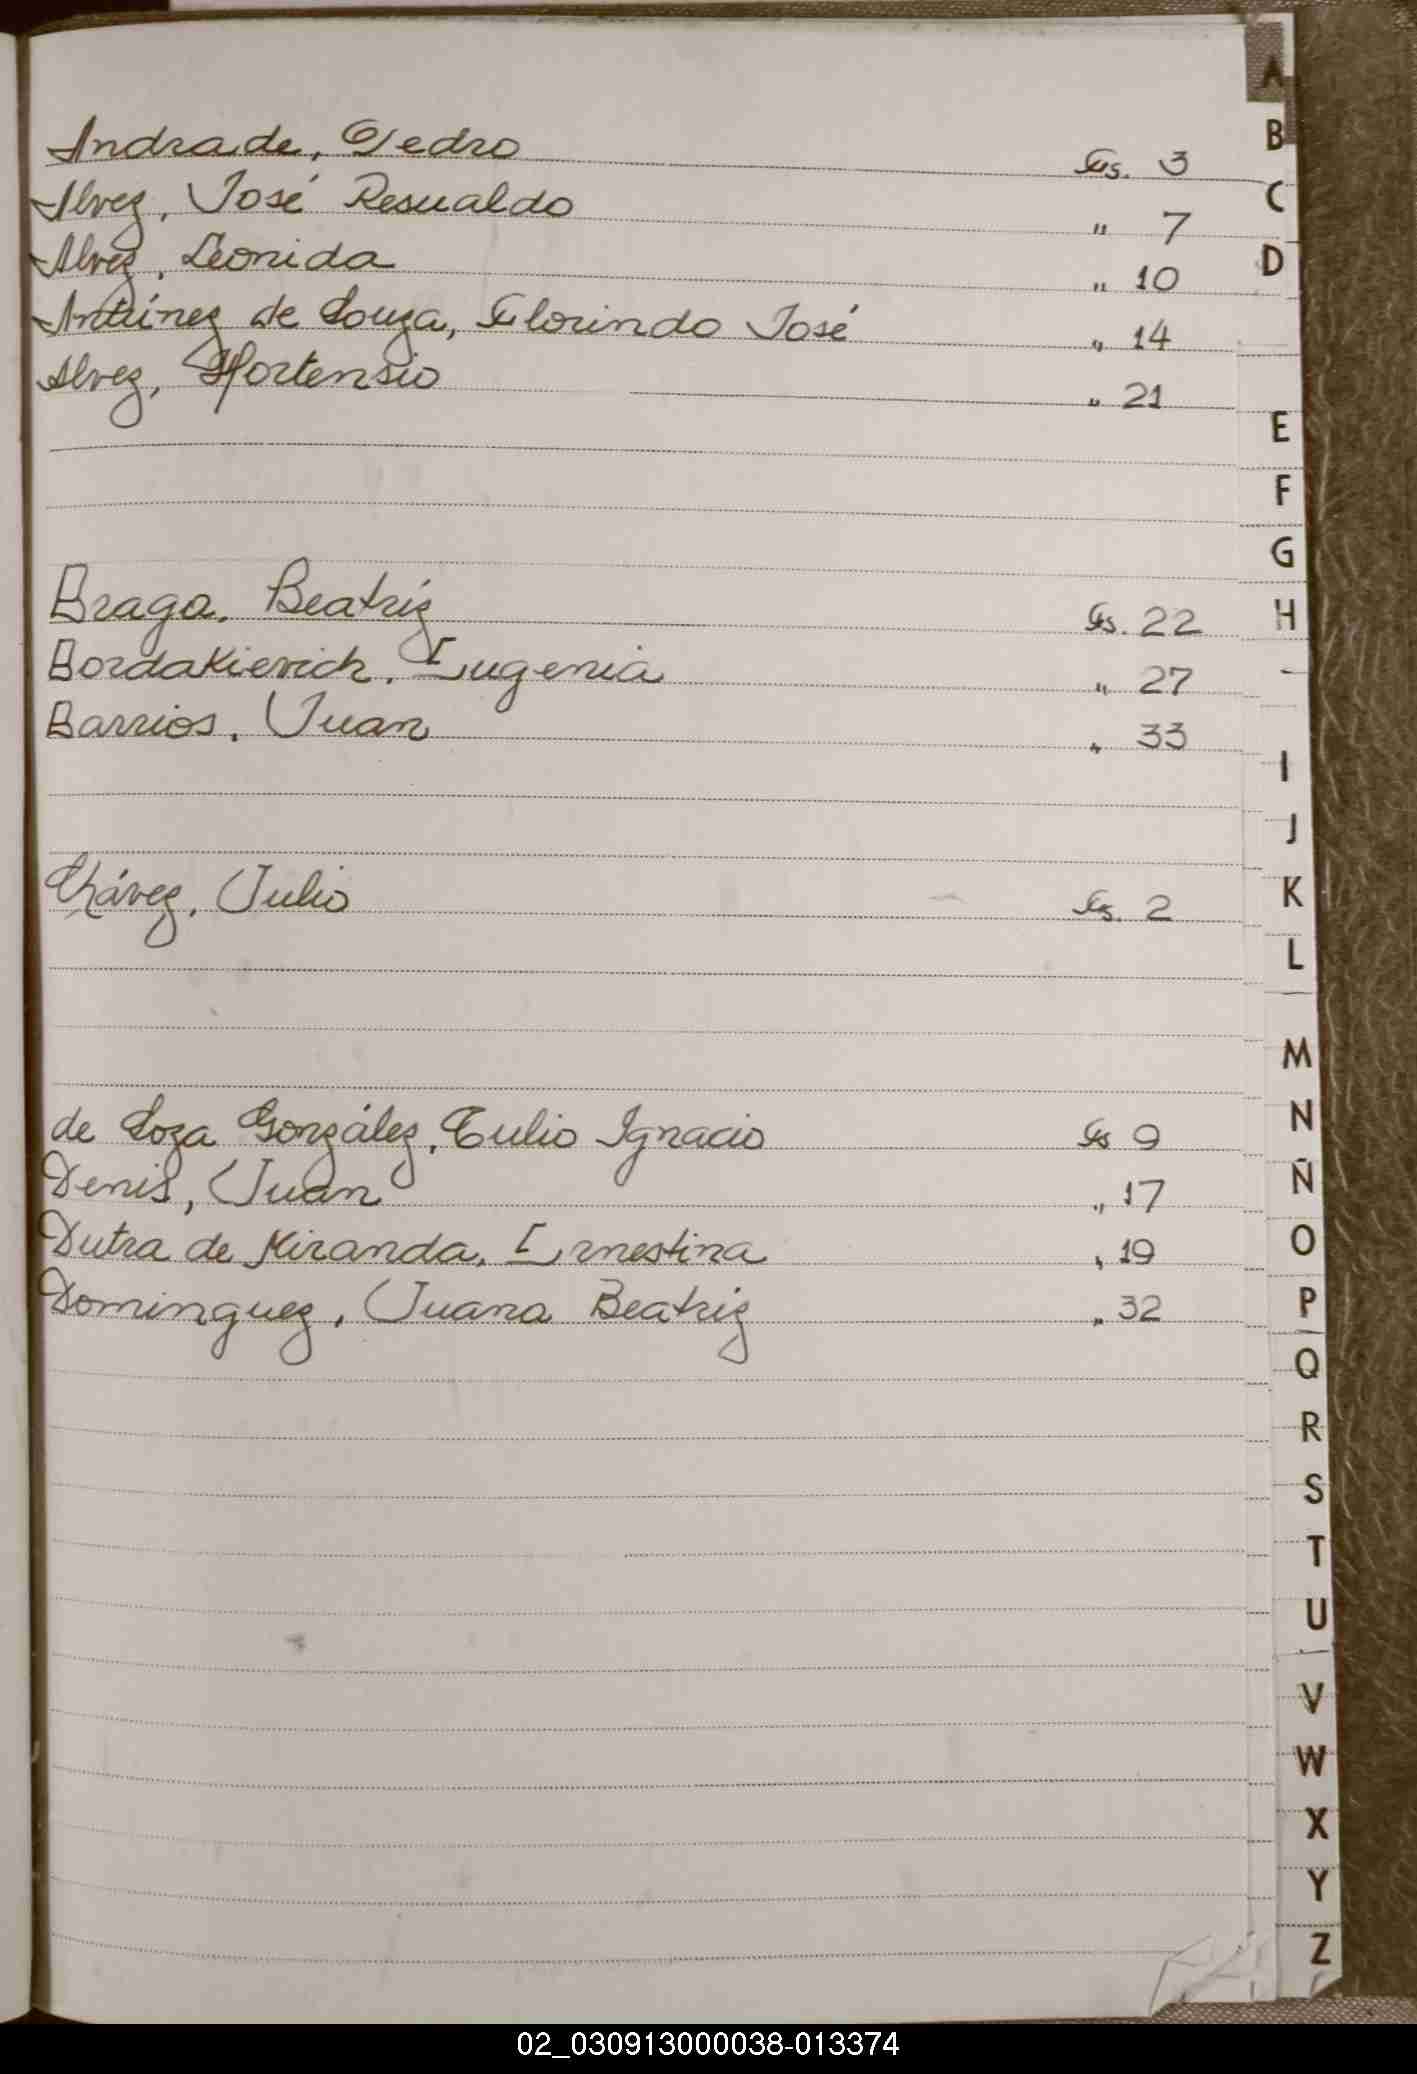 Andrade, Pedro Fs. 3
Alvez, José Resualdo " 7
Alvez, Leonida " 10
Antúnez de Souza, Florindo José " 14
Alvez, Hortensio " 21
Braga, Beatriz Fs. 22
Bordakievich, Eugenia " 27
Barrios, Juan " 33
Chávez, Julio Fs. 2
de Soza González, Tulio Ignacio Fs 9
Denis, Juan " 17
Dutra de Miranda, Ernestina " 19
Dominguez, Juana Beatriz " 32
A
B
C
D
E
F
G
H
I
J
K
L
M
N
Ñ
O
P
Q
R
S
T
U
V
W
X
Y
Z
02_030913000038-013374